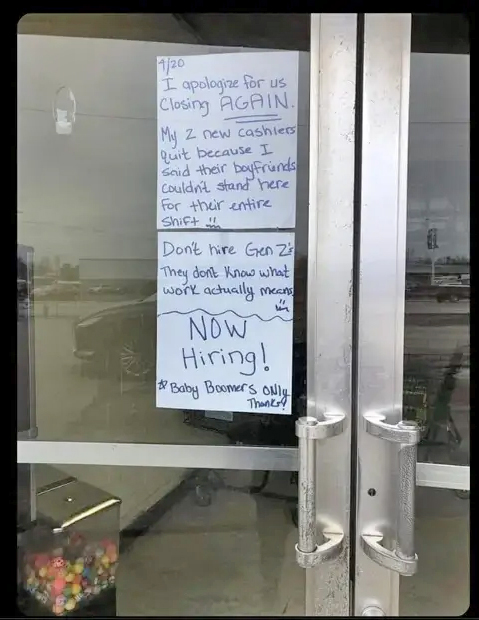 4/20
I apologize for us
Closing AGAIN.
My 2 new cashiers
quit because I
said their boyfriends
couldn't stand here
for their entire
Shift
Don't hire Gen Z's
They don't know what
work actually means
NOW
Hiring!
Baby Boomers ONLY
Thanks!